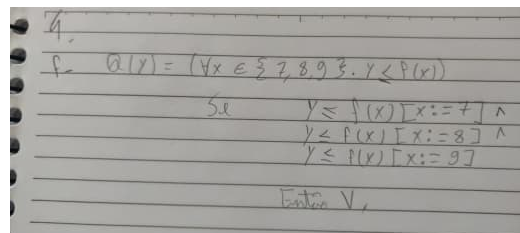 4.
f- Q(y) = (∀x ∈ {7,8,9}. y ≤ f(x))
Se y ≤ f(x)[x:=7] ∧
y ≤ f(x)[x:=8] ∧
y ≤ f(x)[x:=9]
Entón V,